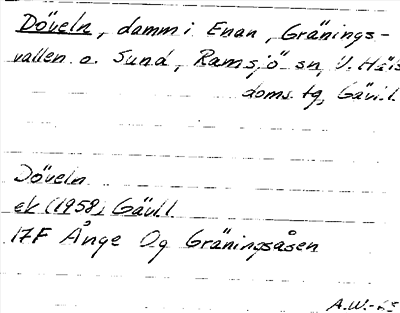 Döveln, damm i Enan, Gränings-
vallen o. Sund, Ramsjö sn, V. Häls
doms. tg, Gävl.
Döveln
ek (1958) Gävl.
17F Ånge Og Gräningsåsen
A.W.-